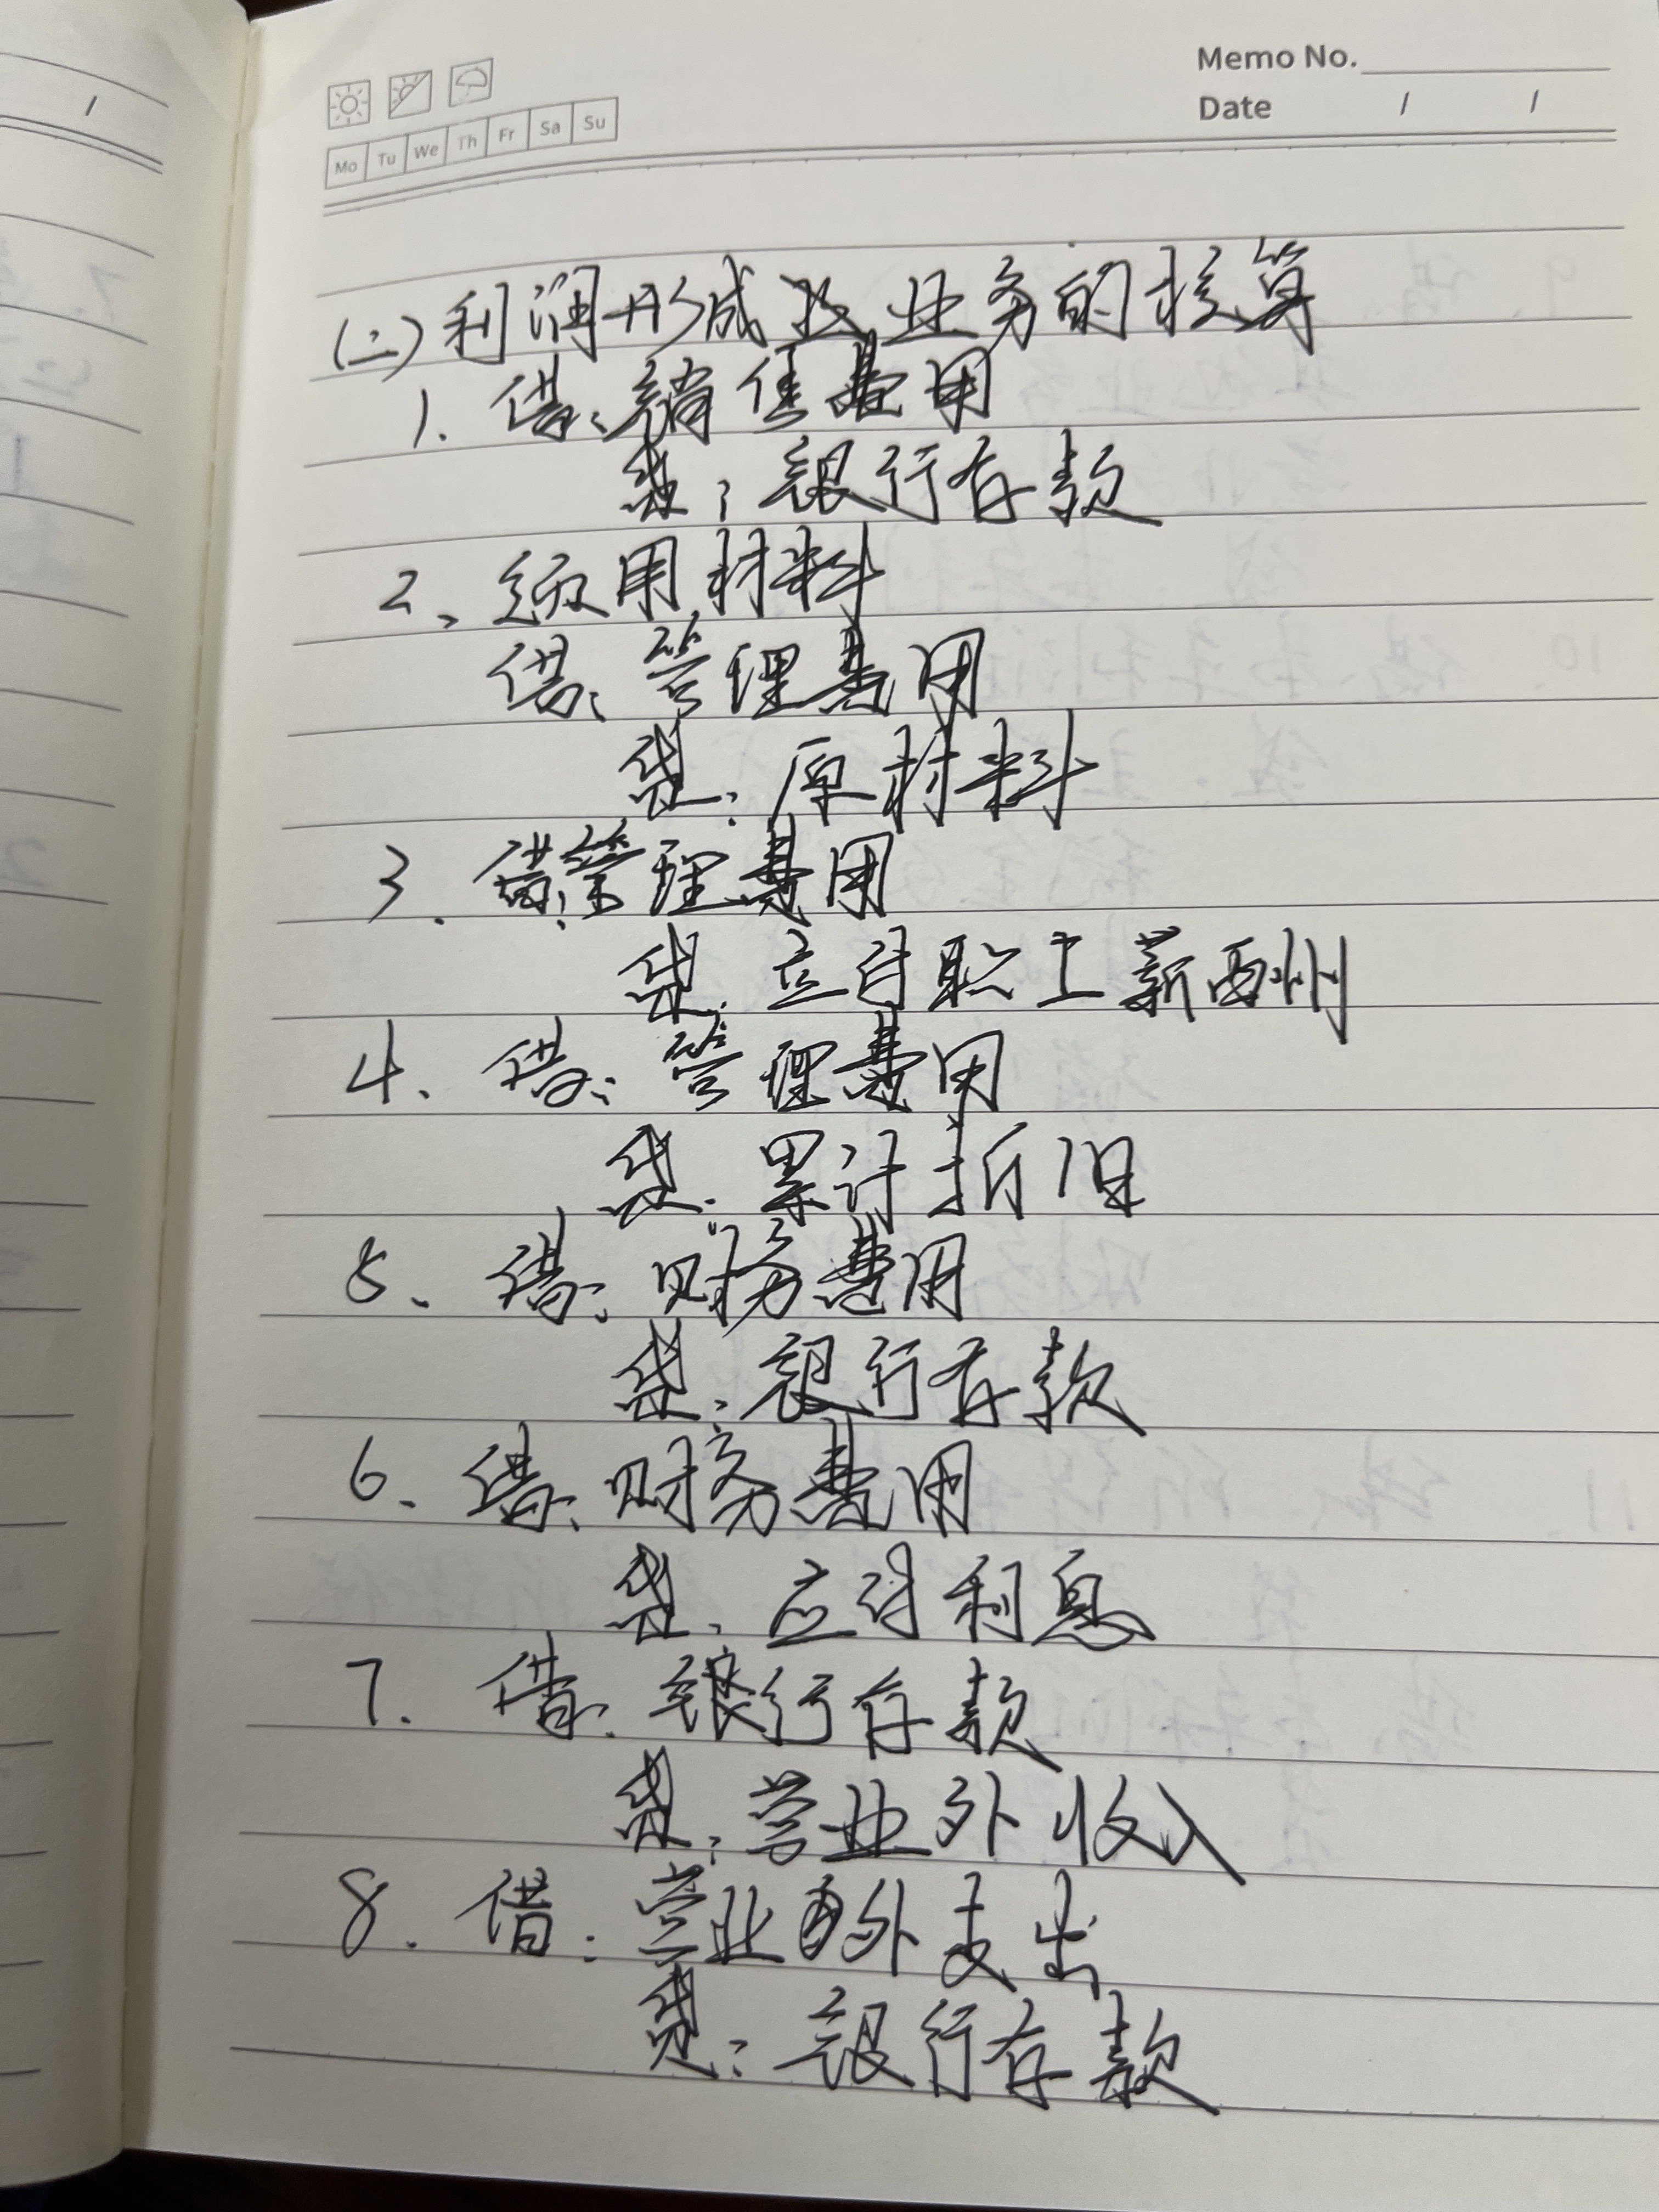 Memo No.
Date / /
Mo Tu We Th Fr Sa Su
(二)利润形成业务的核算
1. 借:销售费用
贷:银行存款
2、领用材料
借:管理费用
贷:原材料
3. 借:管理费用
贷:应付职工薪酬
4. 借:管理费用
贷:累计折旧
5. 借:财务费用
贷:银行存款
6. 借:财务费用
贷:应付利息
7. 借:银行存款
贷:营业外收入
8. 借:营业外支出
贷:银行存款